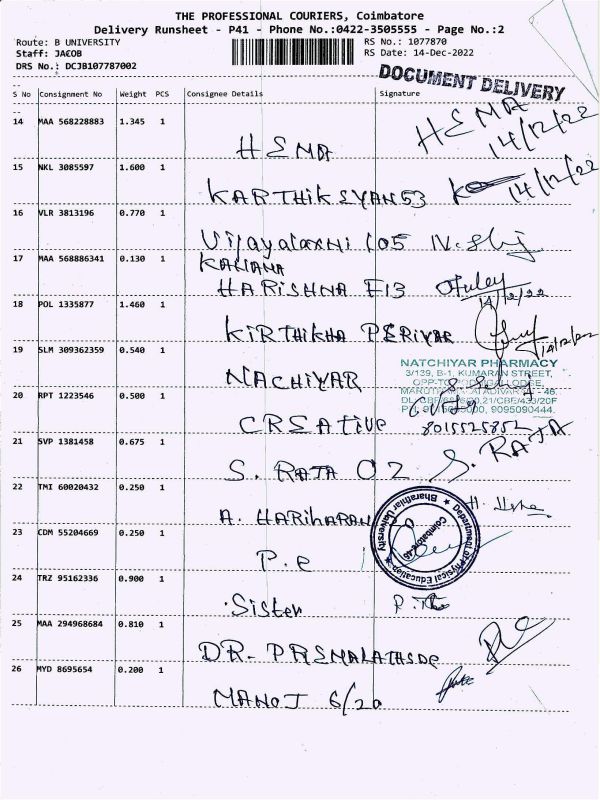 THE PROFESSIONAL COURIERS, Coimbatore
Delivery Runsheet - P41 - Phone No.:0422-3505555 - Page No.:2
Route: B UNIVERSITY
RS No.: 1077870
Staff: JACOB
RS Date: 14-Dec-2022
DRS No.: DCJB107787002
DOCUMENT DELIVERY
S No Consignment No Weight PCS Consignee Details Signature
14 MAA 568228883 1.345 1
HEMA
HEMA
14/12/22
15 NKL 3085597 1.600 1
KARTHIKEYAN 53
14/12/22
16 VLR 3813196 0.770 1
Vijayalaxmi 105
17 MAA 568886341 0.130 1
KANIANA
HARISHNA F13
14/12/22
18 POL 1335877 1.460 1
KIRTHIKHA PERIYAR
14/12/22
19 SLM 309362359 0.540 1
NACHIYAR
NATCHIYAR PHARMACY
3/139, B-1, KUMARAN STREET,
20 RPT 1223546 0.500 1
CREATIVE
9095090444.
8015525852
21 SVP 1381458 0.675 1
S. RAJA 02
S. RAJA
22 TMI 60020432 0.250 1
A. HARIHARAN
23 CDM 55204669 0.250 1
P.e
Department of Physical Education
Bharathiar University
Coimbatore-46
24 TRZ 95162336 0.900 1
Sister
25 MAA 294968684 0.810 1
DR- PREMALATHA
26 MYD 8695654 0.200 1
MANOJ 6/20